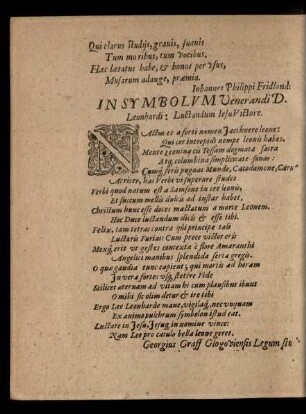 Qui clarus studijs, gravis, suavis
Tum moribus, tum vocibus,
Hæc lætatus habe, & bonos per usus,
Musarum adauge, præmia.
Iohannes Philippi Fridland:
IN SYMBOLVM Venerandi D.
Leonhardi: Luctandum Iesu Victore.
NActus es à forti nomen
Qui cer intrepidi nempe leonis habes.
Mente
Atq; columbina simplicitate
Cumq; feris pugnas Mundo, Cacodæmone, Carne
Acriter, has Verbi vi superare studes
Verbi quod natum est à Samsone in ore leonis,
Et succum mellis dulcis ad instar habet,
Christum hunc esse doces mactatum a morte Leonem.
Hoc Duce luctandum dicis & esse tibi.
Felix, tam tetras contra qui principe tali
Luctaris Furias: Cum prece victor eris
Mexq; erit ut gestes contexta è flore Amarantho
Angelici manibus splendida serta gregis.
O qua gaudia tunc capient; qui martis ad horam
In vera fortes usq; stetere fide
Scilicet æternam ad vitam hi cum plausibus ibunt
O mihi sic olim detur & ire tibi
Ergo Leo Leonharde mane, vigilaq; nec unquam
Ex animo pulchrum symbolon istud eat.
Luctare in Jesu, Jesuq; in nomine vince:
Nam Leo pro catulo bella leone geret.
Georgius Graff Glogoviensis Legum stu